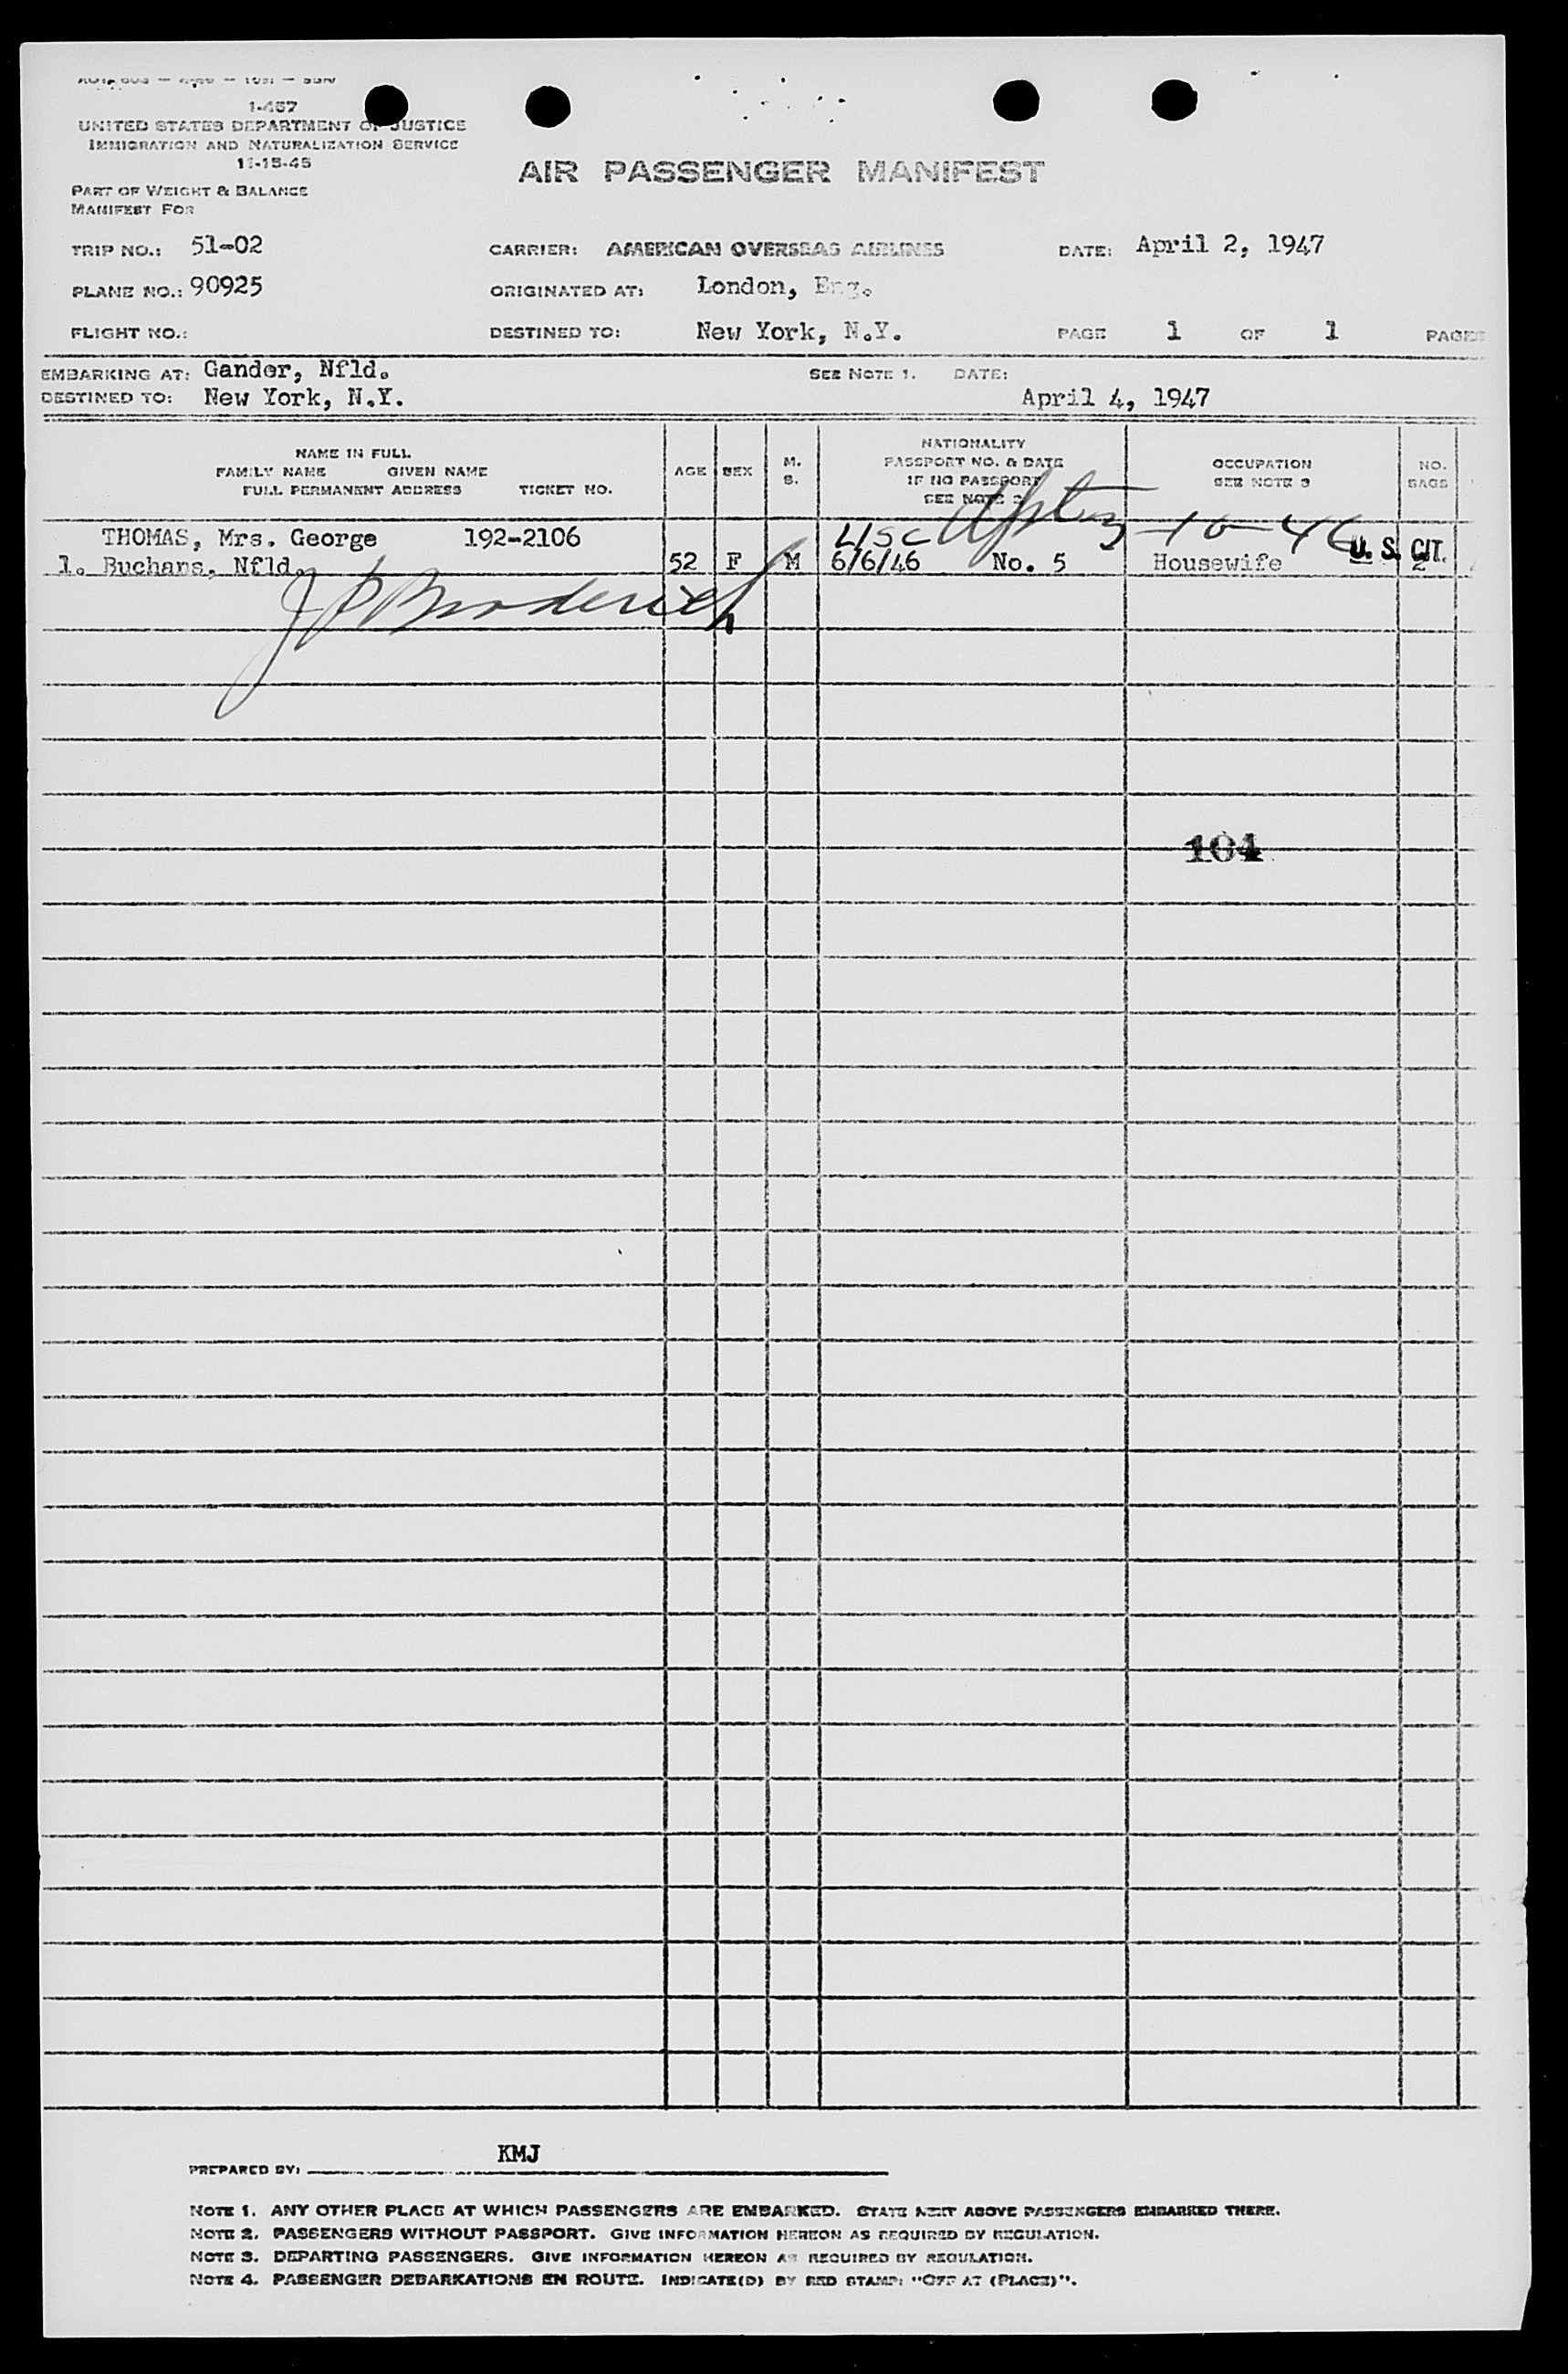 1-457
UNITED STATES DEPARTMENT OF JUSTICE
IMMIGRATION AND NATURALIZATION SERVICE
11-15-45
PART OF WEIGHT & BALANCE
MANIFEST FOR
AIR PASSENGER MANIFEST
TRIP NO.: 51-02 CARRIER: AMERICAN OVERSEAS AIRLINES DATE: April 2, 1947
PLANE NO.: 90925 ORIGINATED AT: London, Eng.
FLIGHT NO.: DESTINED TO: New York, N.Y. PAGE 1 OF 1 PAGES
EMBARKING AT: Gander, Nfld. SEE NOTE 1. DATE:
DESTINED TO: New York, N.Y. April 4, 1947
NAME IN FULL
FAMILY NAME GIVEN NAME
FULL PERMANENT ADDRESS TICKET NO.
AGE SEX M. S.
NATIONALITY
PASSPORT NO. & DATE
IF NO PASSPORT
SEE NOTE 2
OCCUPATION
SEE NOTE 3
NO.
BAGS
THOMAS, Mrs. George 192-2106 USC 10-46 U. S. CIT.
1. Buchans, Nfld. 52 F M 6/6/46 No. 5 Housewife 2
J P Broderick
104
PREPARED BY: KMJ
NOTE 1. ANY OTHER PLACE AT WHICH PASSENGERS ARE EMBARKED. STATE NEXT ABOVE PASSENGERS EMBARKED THERE.
NOTE 2. PASSENGERS WITHOUT PASSPORT. GIVE INFORMATION HEREON AS REQUIRED BY REGULATION.
NOTE 3. DEPARTING PASSENGERS. GIVE INFORMATION HEREON AS REQUIRED BY REGULATION.
NOTE 4. PASSENGER DEBARKATIONS EN ROUTE. INDICATE(D) BY RED STAMP: "OFF AT (PLACE)".